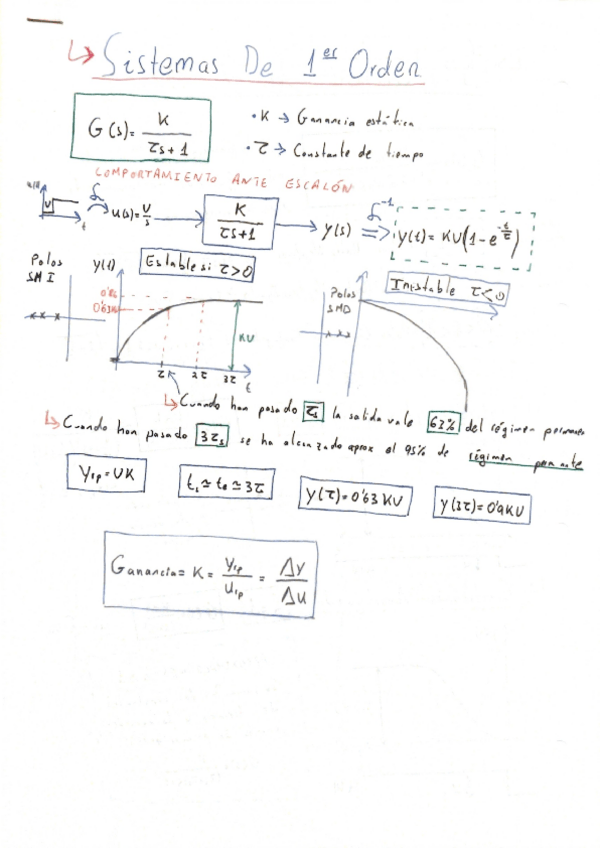 ↳ Sistemas De 1er Orden
G(s) = K / τs + 1
• K → Ganancia estática
• τ → Constante de tiempo
COMPORTAMIENTO ANTE ESCALÓN
U t
ℒ u(s) = U/s → K / τs + 1 → y(s) ℒ⁻¹ ⇒ y(t) = KU(1 - e^(-t/τ))
Polos SMI
y(t)
Estable si τ > 0
0'63K
KU
τ 2τ 3τ t
Polos SMD
Inestable τ < 0
↳ Cuando han pasado τs la salida vale 63% del régimen
↳ Cuando han pasado 3τs se ha alcanzado aprox el 95% de régimen
Yrp = UK
ts ≃ te ≃ 3τ
y(τ) = 0'63 KU
y(3τ) = 0'9KU
Ganancia = K = yrp / urp = Δy / Δu